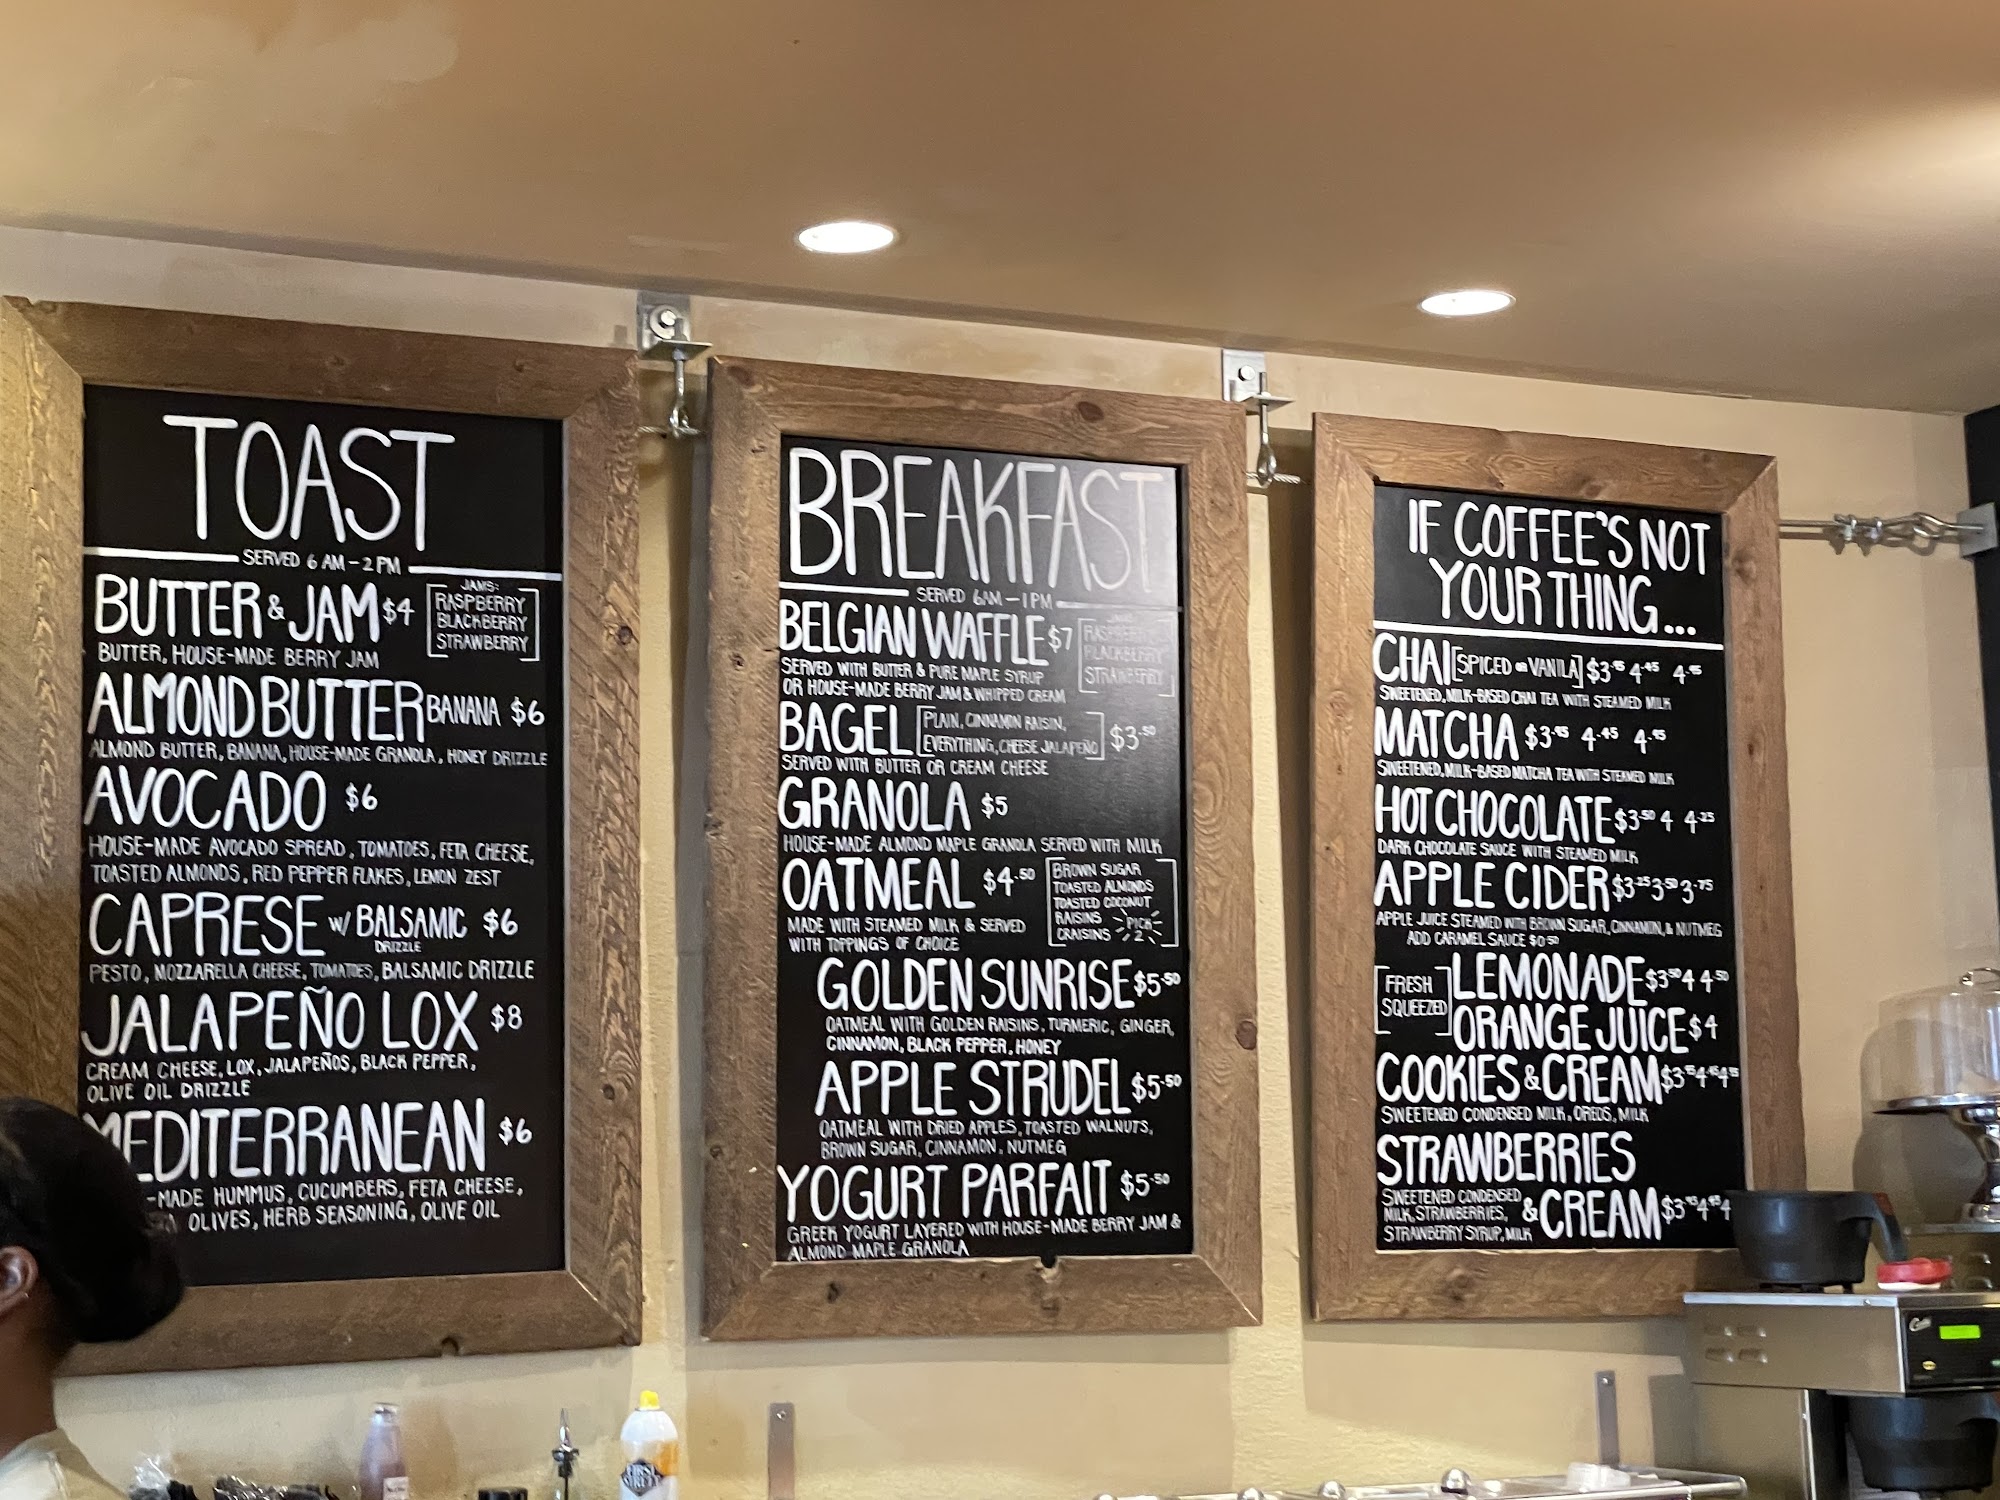 TOAST
SERVED 6 AM – 2 PM
BUTTER & JAM $4
JAMS:
RASPBERRY
BLACKBERRY
STRAWBERRY
BUTTER, HOUSE-MADE BERRY JAM
ALMOND BUTTER BANANA $6
ALMOND BUTTER, BANANA, HOUSE-MADE GRANOLA, HONEY DRIZZLE
AVOCADO $6
HOUSE-MADE AVOCADO SPREAD, TOMATOES, FETA CHEESE,
TOASTED ALMONDS, RED PEPPER FLAKES, LEMON ZEST
CAPRESE W/ BALSAMIC $6
DRIZZLE
PESTO, MOZZARELLA CHEESE, TOMATOES, BALSAMIC DRIZZLE
JALAPEÑO LOX $8
CREAM CHEESE, LOX, JALAPEÑOS, BLACK PEPPER,
OLIVE OIL DRIZZLE
MEDITERRANEAN $6
-MADE HUMMUS, CUCUMBERS, FETA CHEESE,
OLIVES, HERB SEASONING, OLIVE OIL
BREAKFAST
SERVED 6AM – 1PM
BELGIAN WAFFLE $7
JAMS:
RASPBERRY
BLACKBERRY
STRAWBERRY
SERVED WITH BUTTER & PURE MAPLE SYRUP
OR HOUSE-MADE BERRY JAM & WHIPPED CREAM
BAGEL [PLAIN, CINNAMIN RAISIN,
EVERYTHING, CHEESE JALAPEÑO] $3.50
SERVED WITH BUTTER OR CREAM CHEESE
GRANOLA $5
HOUSE-MADE ALMOND MAPLE GRANOLA SERVED WITH MILK
OATMEAL $4.50
BROWN SUGAR
TOASTED ALMONDS
TOASTED COCONUT
RAISINS
CRAISINS
PICK
2
MADE WITH STEAMED MILK & SERVED
WITH TOPPINGS OF CHOICE
GOLDEN SUNRISE $5.50
OATMEAL WITH GOLDEN RAISINS, TURMERIC, GINGER,
CINNAMON, BLACK PEPPER, HONEY
APPLE STRUDEL $5.50
OATMEAL WITH DRIED APPLES, TOASTED WALNUTS,
BROWN SUGAR, CINNAMON, NUTMEG
YOGURT PARFAIT $5.50
GREEK YOGURT LAYERED WITH HOUSE-MADE BERRY JAM &
ALMOND MAPLE GRANOLA
IF COFFEE'S NOT
YOUR THING...
CHAI [SPICED OR VANILA] $3.95 4.45 4.95
SWEETENED, MILK-BASED CHAI TEA WITH STEAMED MILK
MATCHA $3.95 4.45 4.95
SWEETENED, MILK-BASED MATCHA TEA WITH STEAMED MILK
HOT CHOCOLATE $3.50 4 4.25
DARK CHOCOLATE SAUCE WITH STEAMED MILK
APPLE CIDER $3.25 3.50 3.75
APPLE JUICE STEAMED WITH BROWN SUGAR, CINNAMON, & NUTMEG
ADD CARAMEL SAUCE $0.50
[FRESH
SQUEEZED]
LEMONADE $3.50 4 4.50
ORANGE JUICE $4
COOKIES & CREAM $3.95 4.45 4.95
SWEETENED CONDENSED MILK, OREOS, MILK
STRAWBERRIES
& CREAM $3.95 4.45 4
SWEETENED CONDENSED
MILK, STRAWBERRIES,
STRAWBERRY SYRUP, MILK
Curtis
FIRST
STREET